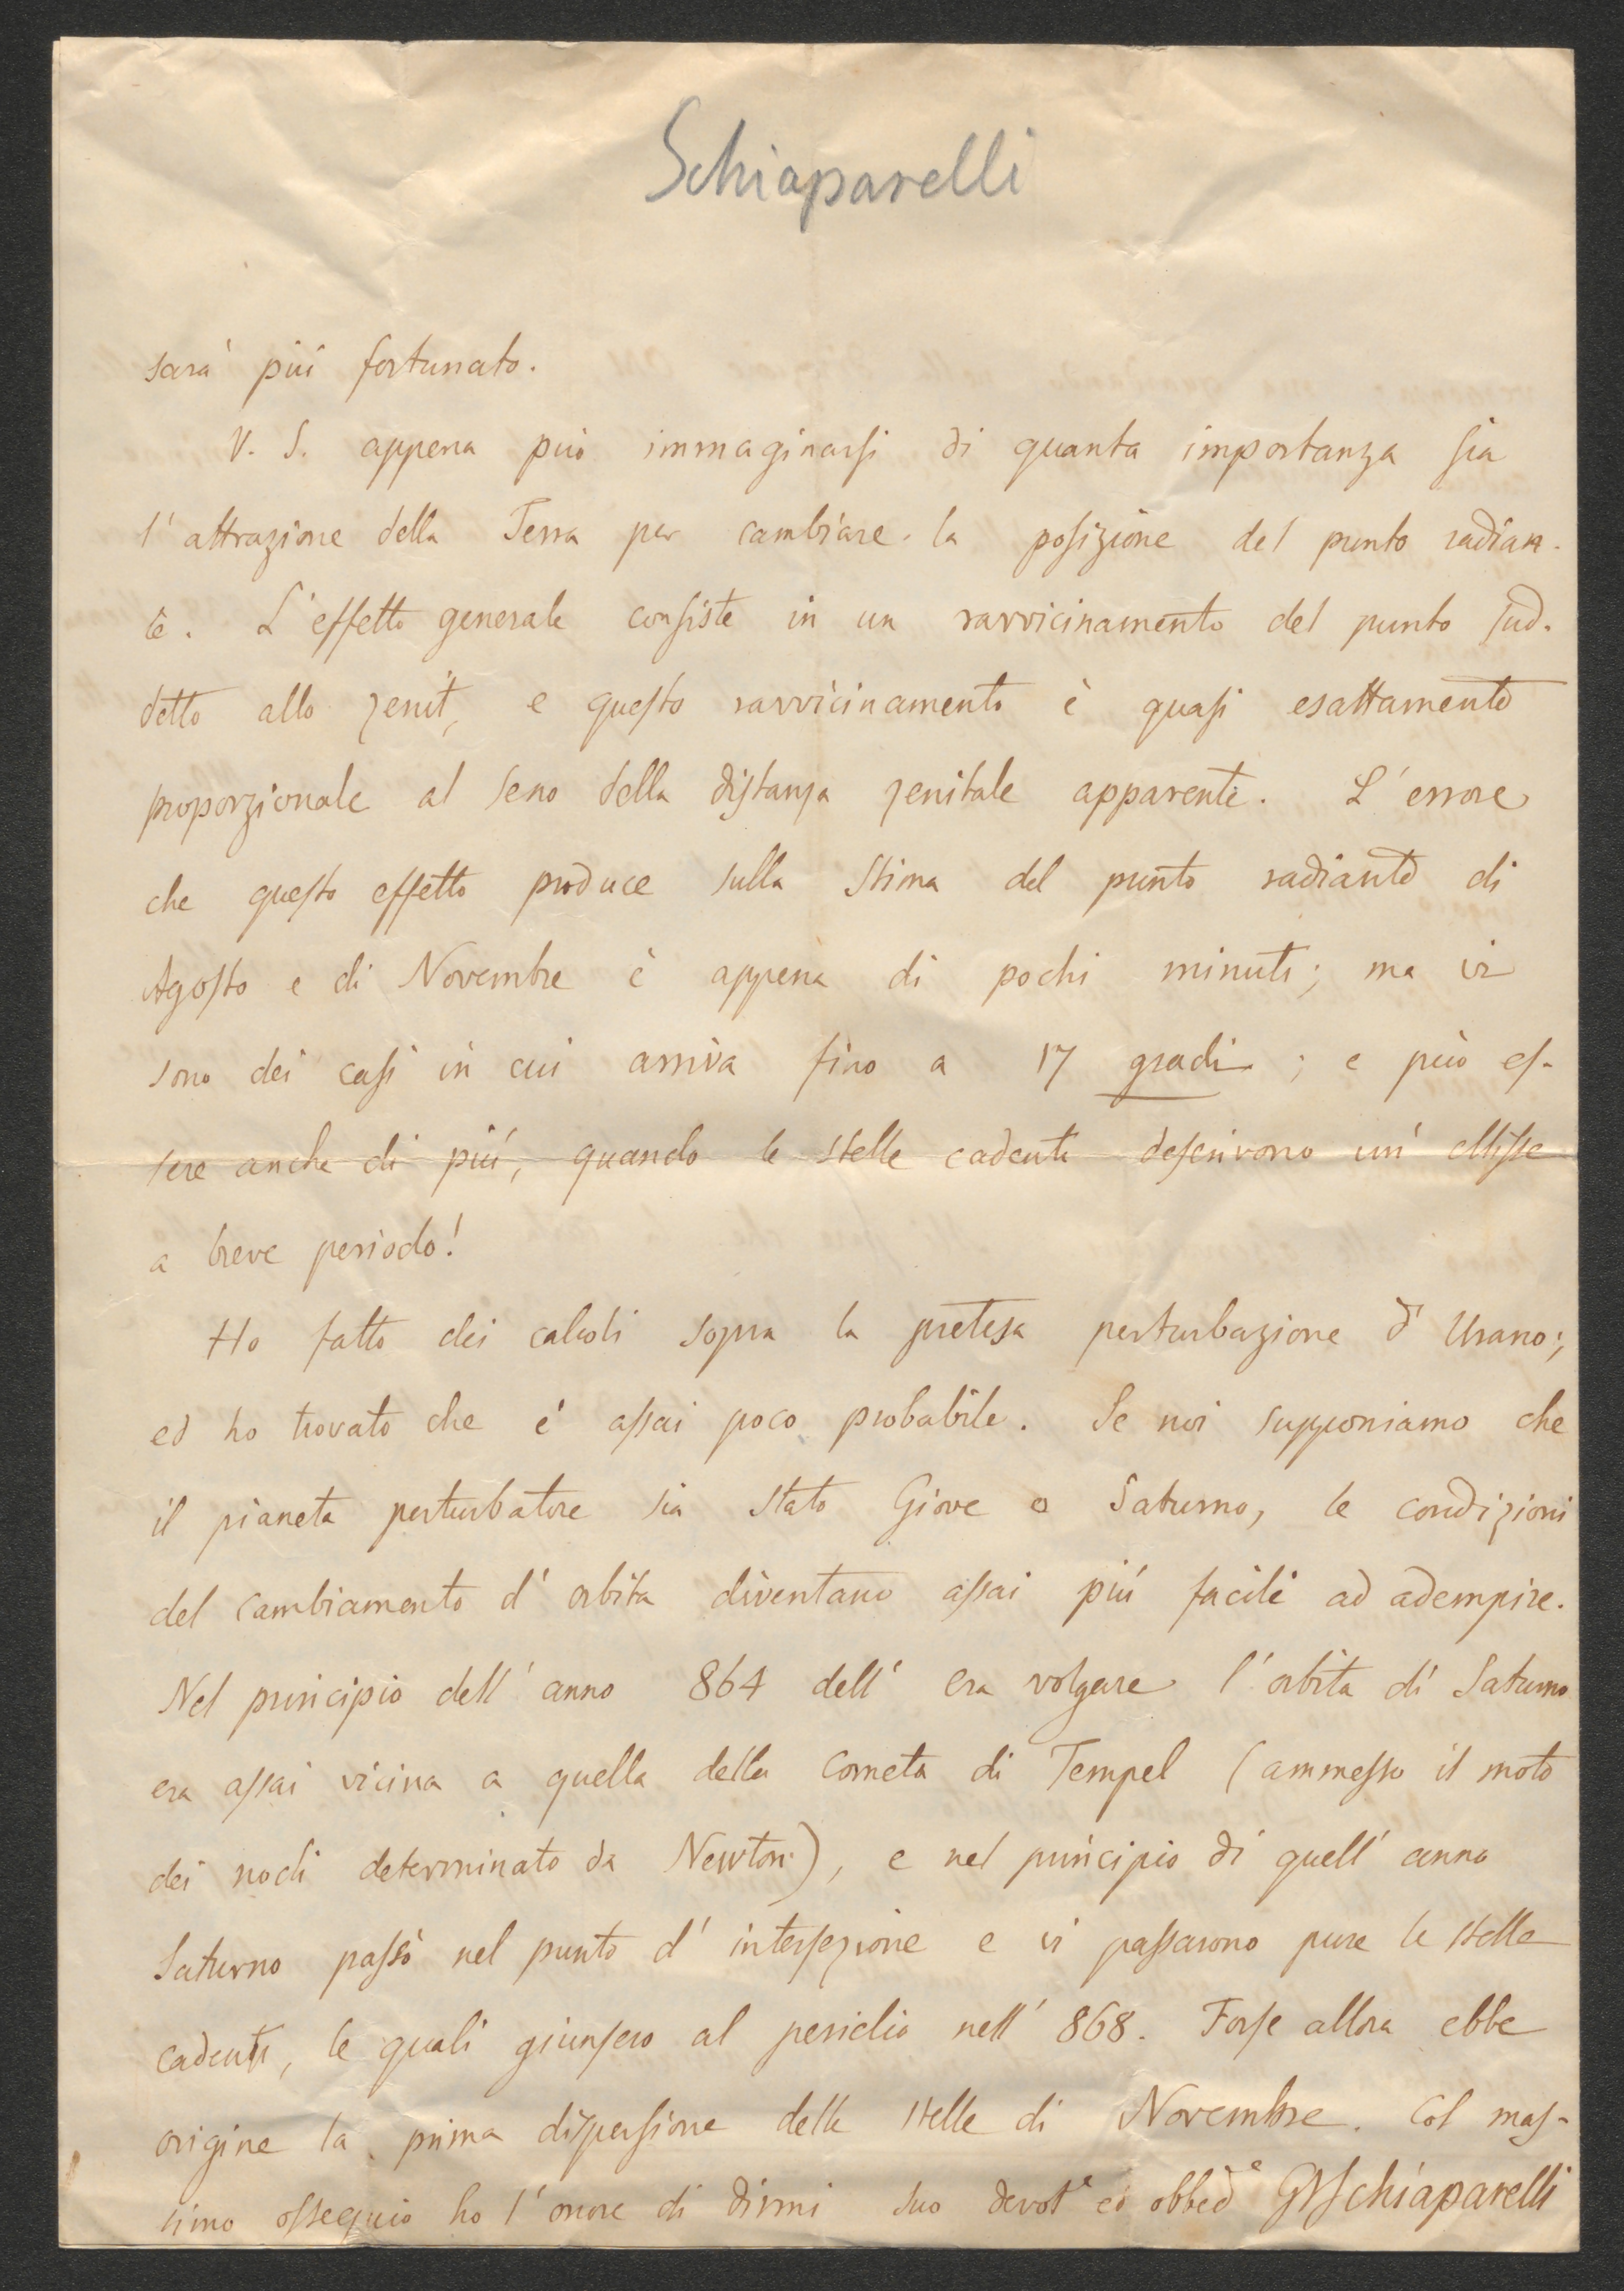 Schiaparelli
sarà più fortunato.
V. S. appena può immaginarsi di quanta importanza sia
l'attrazione della Terra per cambiare la posizione del punto radian-
te. L'effetto generale consiste in un ravvicinamento del punto sud-
detto allo zenit, e questo ravvicinamento è quasi esattamente
proporzionale al seno della distanza zenitale apparente. L'errore
che questo effetto produce sulla stima del punto radiante di
Agosto e di Novembre è appena di pochi minuti; ma vi
sono dei casi in cui arriva fino a 17 gradi; e può es-
sere anche di più, quando le stelle cadenti descrivono un'ellisse
a breve periodo!
Ho fatto dei calcoli sopra la pretesa perturbazione d'Urano;
ed ho trovato che è assai poco probabile. Se noi supponiamo che
il pianeta perturbatore sia stato Giove o Saturno, le condizioni
del cambiamento d'orbita diventano assai più facili ad adempire.
Nel principio dell'anno 864 dell'era volgare l'orbita di Saturno
era assai vicina a quella della Cometa di Tempel (ammesso il moto
dei nodi determinato da Newton), e nel principio di quell'anno
Saturno passò nel punto d'intersezione e vi passarono pure le stelle
cadenti, le quali giunsero al perielio nell'868. Forse allora ebbe
origine la prima dispersione delle stelle di Novembre. Col mas-
simo ossequio ho l'onore di dirmi suo devot^e ed obbed^e GVSchiaparelli